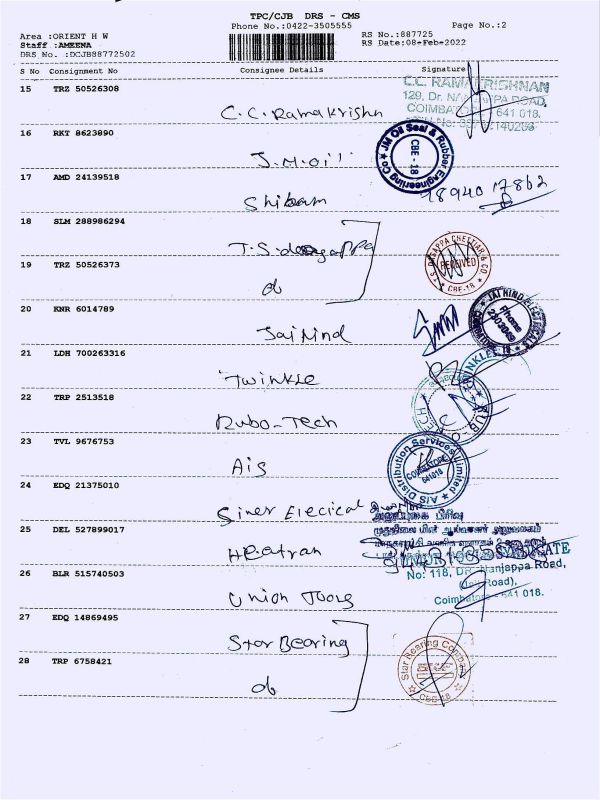 TPC/CJB DRS - CMS
Phone No.:0422-3505555
Page No.:2
Area :ORIENT H W
Staff :AMEENA
DRS No. :DCJB88772502
RS No.:887725
RS Date:08-Feb-2022
S No Consignment No Consignee Details Signature
15 TRZ 50526308
C.C. Ramakrishn
C.C. RAMAKRISHNAN
COIMBATORE 641 018.
16 RKT 8623890
J.M.Oil
JM Oil Seal & Rubber Engineering Co
CBE - 18
17 AMD 24139518
Shibam
18 SLM 288986294
19 TRZ 50526373
do
RECEIVED
CBE-18
20 KNR 6014789
Jai Hind
JAI HIND ELECTRICALS
Phone
21 LDH 700263316
Twinkle
22 TRP 2513518
Rubo-Tech
23 TVL 9676753
AIS
AIS Distribution Services Limited
COIMBATORE
641018
24 EDQ 21375010
25 DEL 527899017
SYNDICATE
26 BLR 515740503
Union Toors
No: 118, DR. Nanjappa Road,
Coimbatore - 641 018.
27 EDQ 14869495
Star Bearing
28 TRP 6758421
do
Star Bearing Company
CBE-18